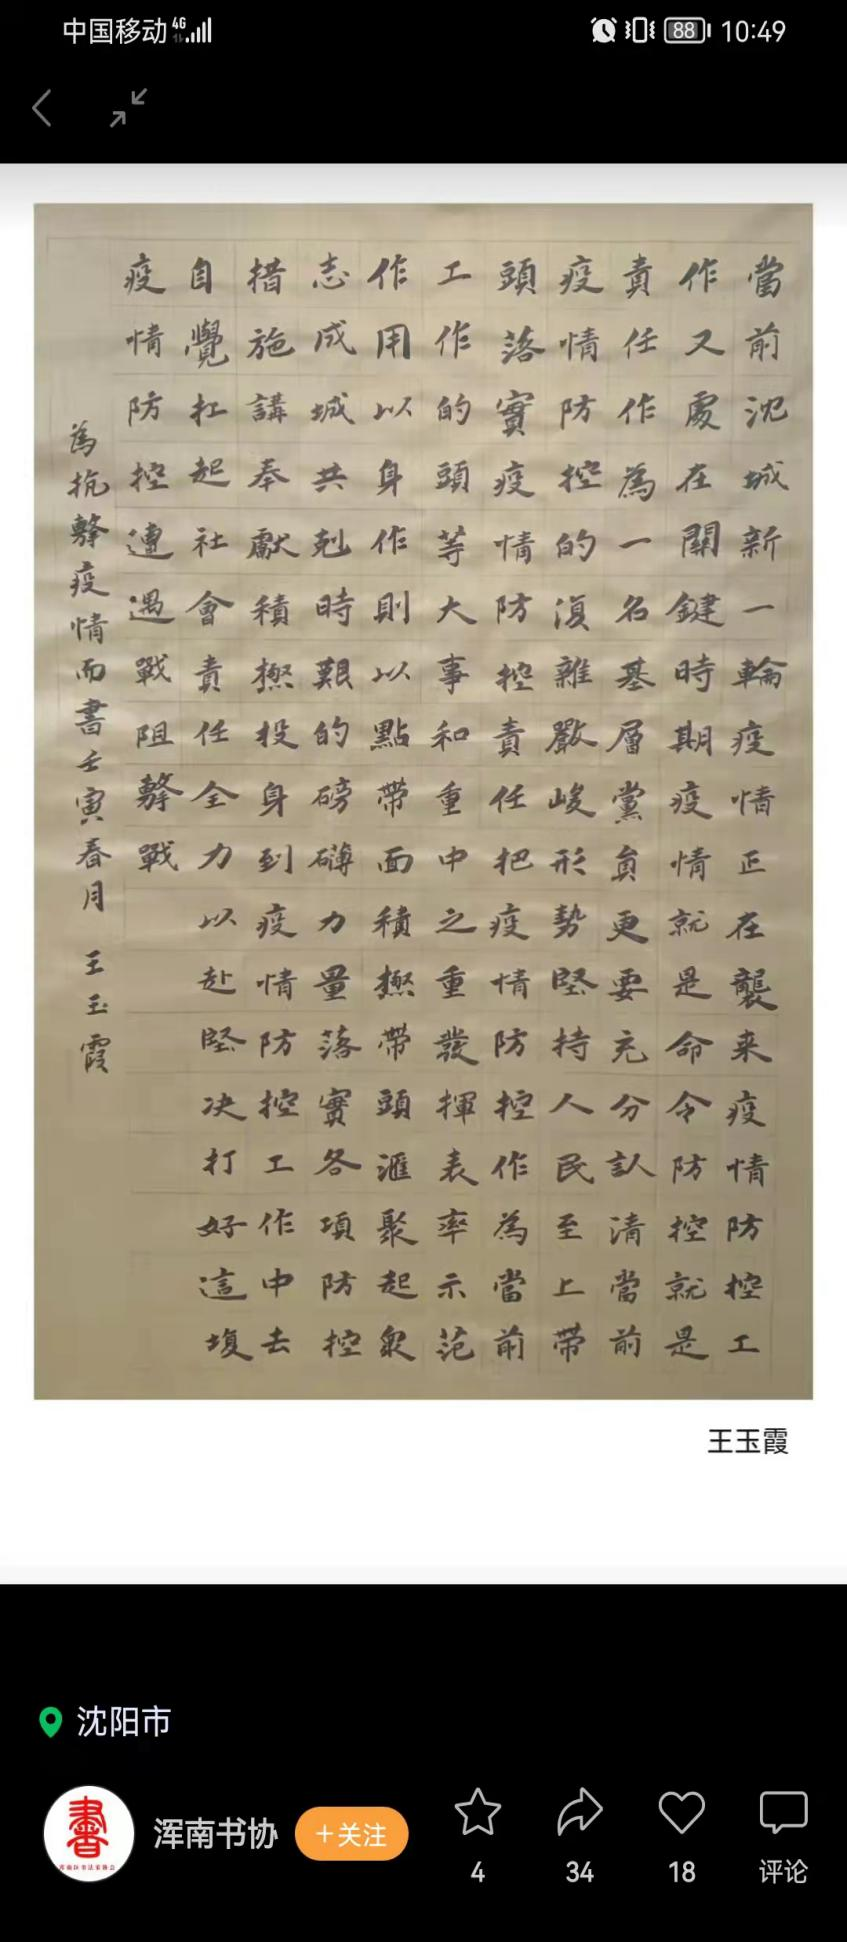 中国移动 4G 88 10:49
當前沈城新一輪疫情正在襲来疫情防控工
作又處在關鍵時期疫情就是命令防控就是
責任作為一名基層黨員更要充分認清當前
疫情防控的復雜嚴峻形勢堅持人民至上帶
頭落實疫情防控責任把疫情防控作為當前
工作的頭等大事和重中之重發揮表率示范
作用以身作則以點帶面積極帶頭滙聚起衆
志成城共剋時艱的磅礴力量落實各項防控
措施講奉獻積極投身到疫情防控工作中去
自覺扛起社會責任全力以赴堅决打好這場
疫情防控遭遇戰阻擊戰
為抗擊疫情而書壬寅春月 王玉霞
王玉霞
沈阳市
浑南书协 +关注
4 34 18 评论